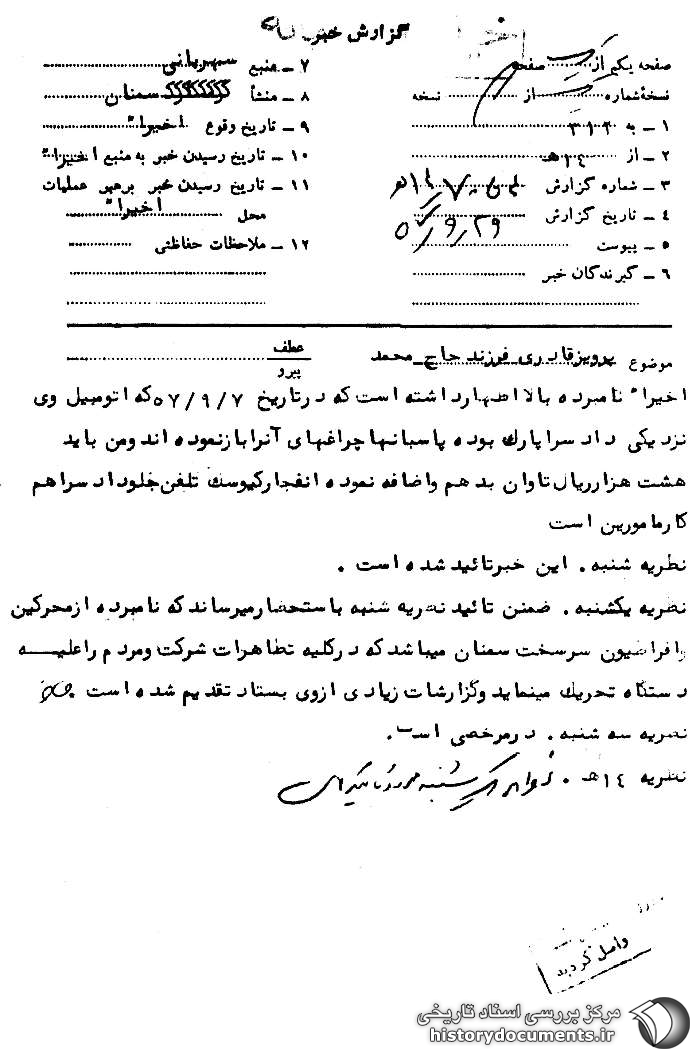 گزارش خبر
صفحه یکم از ... صفحه
نسخهٔ شماره ... از ... نسخه
۱ ـ به ۳۱۲
۲ ـ از ۱۴هـ
۳ ـ شماره گزارش
۴ ـ تاریخ گزارش ۵۷/۹/۲۹
۵ ـ پیوست
۶ ـ گیرندگان خبر
۷ ـ منبع شهربانی
۸ ـ منشأ سمنان
۹ ـ تاریخ وقوع اخیراً
۱۰ ـ تاریخ رسیدن خبر به منبع اخیراً
۱۱ ـ تاریخ رسیدن خبر برهبر عملیات
محل اخیراً
۱۲ ـ ملاحظات حفاظتی
موضوع پرویز قادری فرزند حاج محمد
عطف
پیرو
اخیراً نامبرده بالا اظهار داشته است که در تاریخ ۵۷/۹/۷ که اتومبیل وی
نزدیکی دادسرا پارک بوده پاسبانها چراغهای آنرا باز نموده اند ومن باید
هشت هزار ریال تاوان بدهم واضافه نموده انفجار کیوسک تلفن جلو دادسرا هم
کار مامورین است
نظریه شنبه . این خبر تائید شده است .
نظریه یکشنبه . ضمن تائید نظریه شنبه باستحضار میرساند که نامبرده از محرکین
وافراطیون سرسخت سمنان میباشد که در کلیه تظاهرات شرکت ومردم را علیه
دستگاه تحریک مینماید وگزارشات زیادی ازوی بستاد تقدیم شده است
نظریه سه شنبه . درمرخصی است .
نظریه ۱۴هـ .
واصل گردید
مرکز بررسی اسناد تاریخی
historydocuments.ir